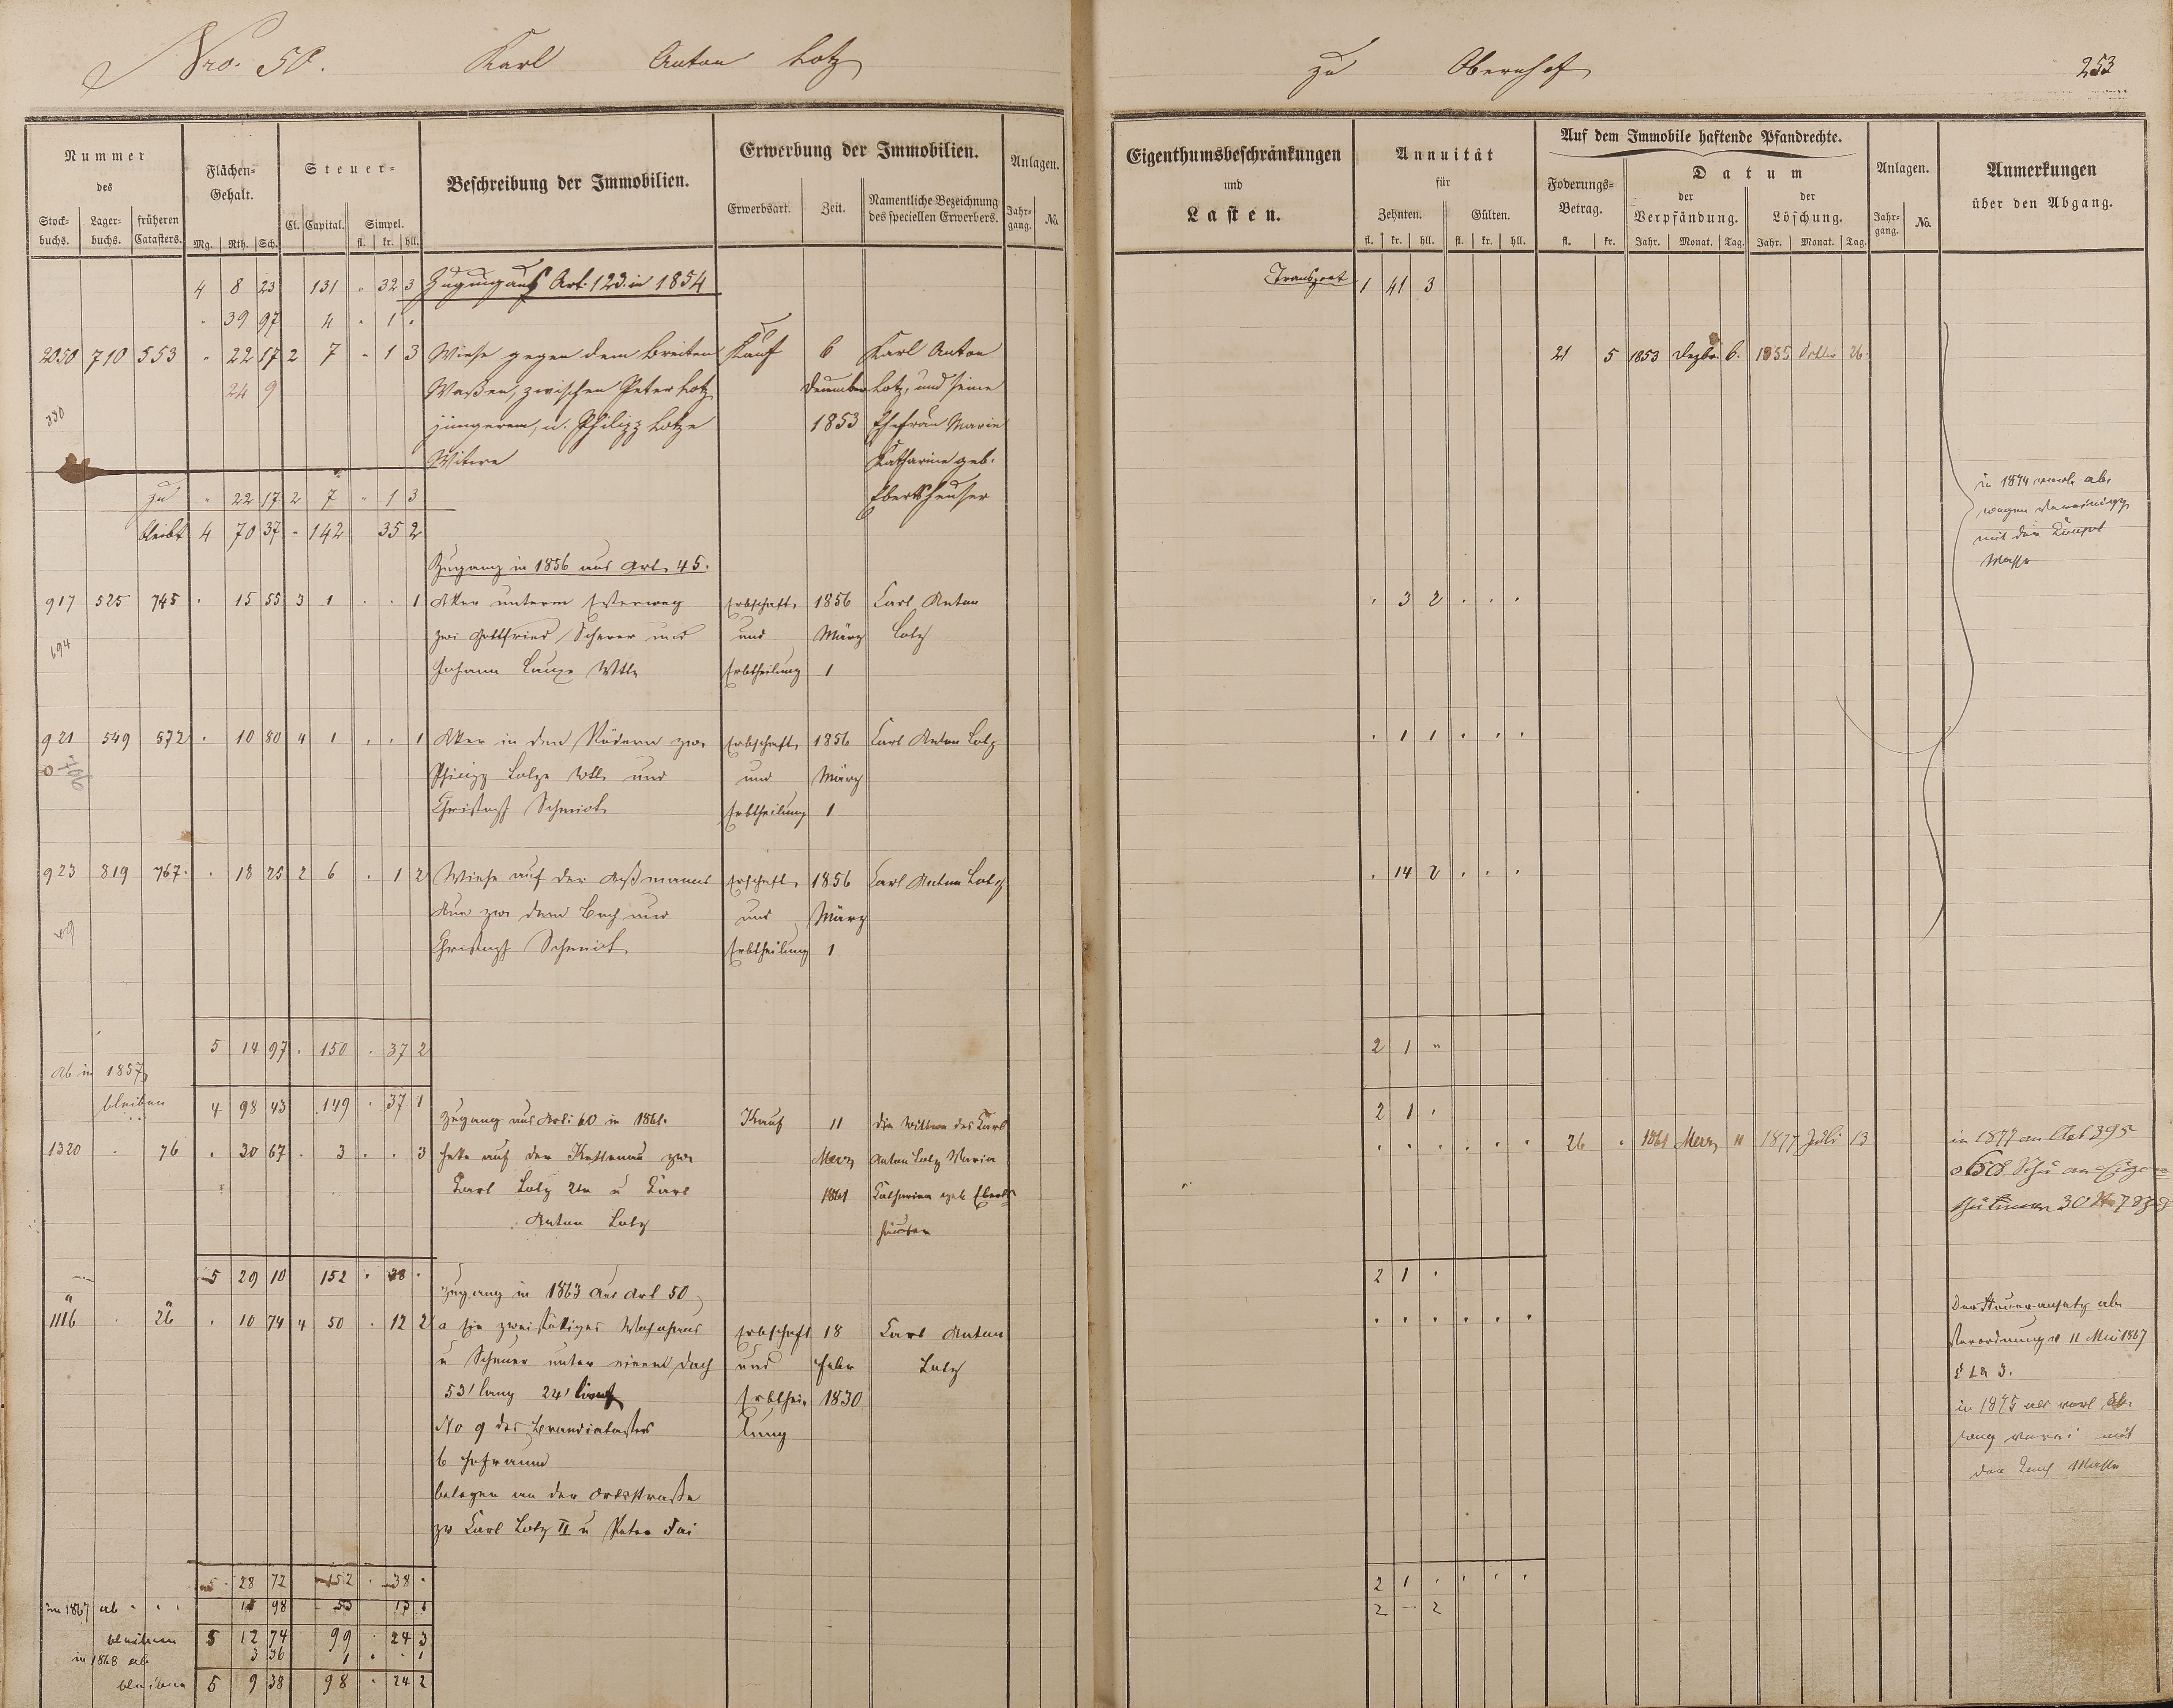 Nro. 50. Karl Anton Lotz
Nummer
des
Stock-buchs. Lager-buchs. früheren Catasters.
Flächen-Gehalt.
Mg. Rth. Sch.
Steuer-
Cl. Capital. Simpel.
fl. kr. hll.
Beschreibung der Immobilien.
Erwerbung der Immobilien.
Erwerbsart. Zeit. Namentliche Bezeichnung des speciellen Erwerbers.
Anlagen.
Jahr-gang. No.
4 8 23 131 " 32 3 Zugang aus Art. 123 in 1854
" 39 97 4 " 1 "
2050 710 553 " 22 17 2 7 " 1 3 Wiese gegen dem breiten Kauf 6 Karl Anton
24 9 Waßen, zwischen Peter Lotz December Lotz, und seine
330 jüngerem, u. Philipp Lotze 1853 Ehefrau Marie
Witwe Katharine geb.
zu " 22 17 2 7 " 1 3 Ebertshäuser
bleibt 4 70 37 - 142 35 2
Zugang in 1856 aus Art. 45.
917 525 745 . 15 55 3 1 . . 1 Aker unterm Erbschaft 1856 Carl Anton
694 zwi Gottfried Scherer und und März Lotz
Johann Wttb Erbtheilung 1
921 549 572 . 10 80 4 1 . . 1 Aker in den Rödern zw. Erbschaft 1856 Carl Anton Lotz
706 Philipp Lotze Wtb und und März
Christoph Schmidt Erbtheilung 1
923 819 767 . 18 25 2 6 . 1 2 Wiese auf der Erbschaft 1856 Carl Anton Lotz
Aue zw. dem Bach und und März
Christoph Schmidt Erbtheilung 1
5 14 97 . 150 . 37 2
Ab in 1857
bleiben 4 98 43 . 149 . 37 1
Zugang aus Art: 60 in 1861. Kauf 11 die Wittwe des Karl
1320 . 76 . 30 67 . 3 . . 3 Heke auf der Kettenau zw. Merz Anton Lotz Maria
Carl Lotz 2te u Carl 1861 Catharina geb Eberts
Anton Lotz häuser
5 29 10 152 . 38 .
Zugang in 1863 aus Art 50
1116 . 26 . 10 74 4 50 . 12 2 a Ein zweistökiges Wohnhaus Erbschaft 18 Carl Anton
u Scheuer unter einem Dach und Febr Lotz
53' lang 24' tief Erbthei- 1830
No 9 des Brandcatasters lung
b Hofraum
belegen an der Ortsstraße
zw Carl Lotz II u Peter
5 28 72 152 . 38 .
im 1867 ab . . . 15 98 53 13 1
bleiben 5 12 74 99 24 3
in 1868 ab 3 36 1 . . 1
bleiben 5 9 38 98 . 24 2
zu Obernhof 253
Eigenthumsbeschränkungen
und
Lasten.
Annuität
für
Zehnten. Gülten.
fl. kr. hll. fl. kr. hll.
Auf dem Immobile haftende Pfandrechte.
Foderungs-Betrag.
fl. kr.
Datum
der Verpfändung. der Löschung.
Jahr. Monat. Tag. Jahr. Monat. Tag.
Anlagen.
Jahr-gang. No.
Anmerkungen
über den Abgang.
Transport 1 41 3
21 5 1853 Dezbr. 6. 1855 Octbr 26.
in 1874 ab,
wegen
mit der
Masse
. 3 2 . . .
. 1 1 . . .
. 14 2 . . .
2 1 "
2 1 .
. . . . . . 26 . 1861 Merz 11 1877 Juli 13 in 1877 an Art 395
2 1 .
. . . . . . Der Steueransatz ab
Verordnung v 11 Mai 1867
§ 1 a 3.
in 1875 ab
mit
der Masse
2 1 . . . .
2 — 2